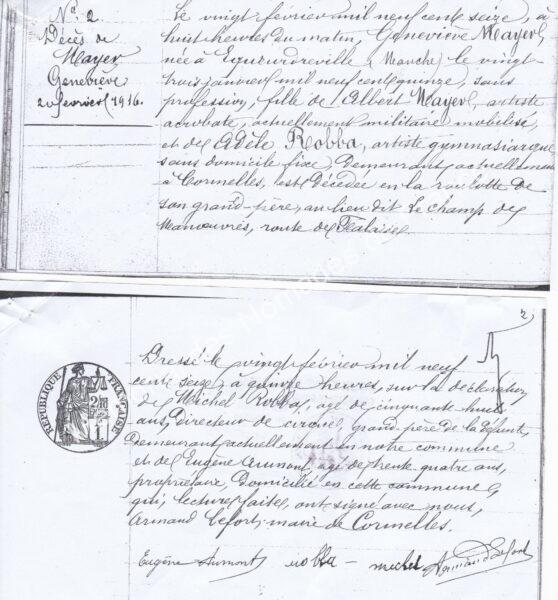 N° 2
Décès de
Mayer
Geneviève
20 février 1916.
Le vingt février mil neuf cent seize, à
huit heures du matin, Geneviève Mayer,
née à Equeurdreville (Manche) le vingt-
trois janvier mil neuf cent quinze, sans
profession, fille de Albert Mayer, artiste
acrobate, actuellement militaire mobilisé,
et de Adèle Robba, artiste gymnasiarque
sans domicile fixe, demeurant actuellement
à Cormelles, est décédée en la roulotte de
son grand-père, au lieu dit le champ de
Manœuvres, route de Falaise.
2
Dressé le vingt février mil neuf
cent seize, à quinze heures, sur la déclaration
de Michel Robba, âgé de cinquante huit
ans, directeur de cirque, grand-père de la défunte,
demeurant actuellement en notre commune
et de Eugène Aumont, âgé de trente quatre ans,
propriétaire, domicilié en cette commune,
qui, lecture faite, ont signé avec nous,
Armand Lefort, maire de Cormelles.
Eugène Aumont robba – michel Armand Lefort
REPUBLIQUE FRANÇAISE